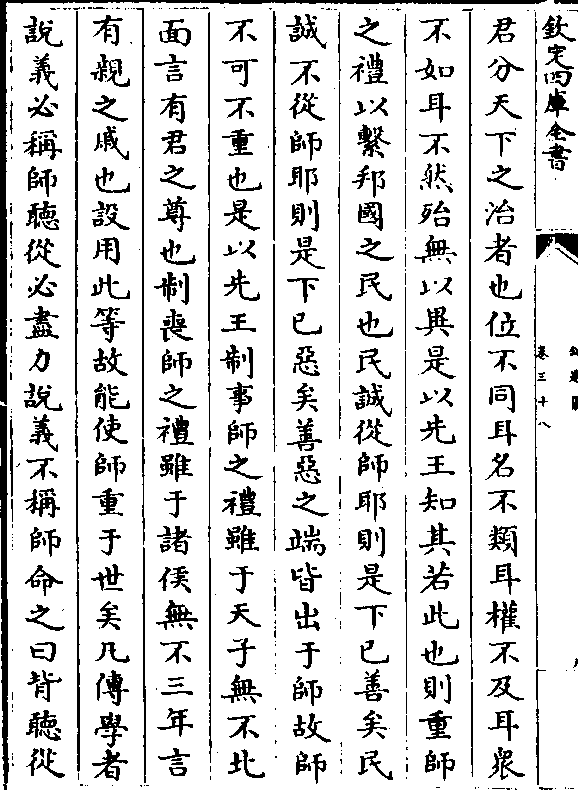 欽定四庫全書
卷三十八
君分天下之治者也位不同耳名不類耳權不及耳衆
不如耳不然殆無以異是以先王知其若此也則重師
之禮以繫邦國之民也民誠從師耶則是下已善矣民
誠不從師耶則是下已惡矣善惡之端皆出于師故師
不可不重也是以先王制事師之禮雖于天子無不北
面言有君之尊也制喪師之禮雖于諸侯無不三年言
有親之戚也設用此等故能使師重于世矣凡傳學者
說義必稱師聽從必盡力說義不稱師命之曰背聽從